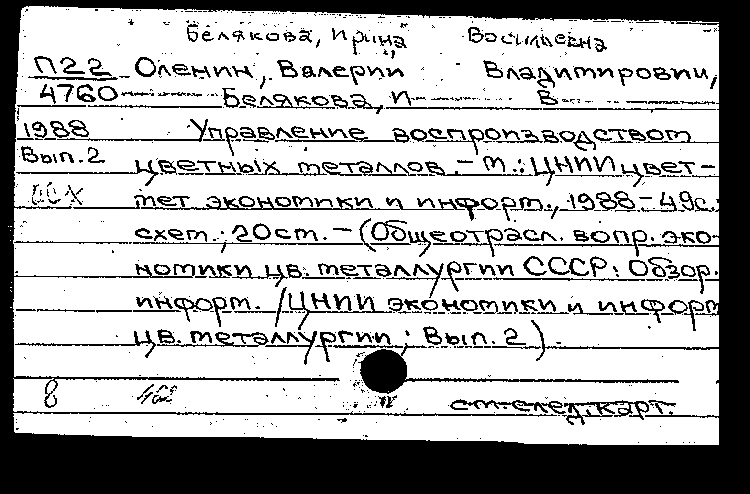 Белякова, Ирина Васильевна
П22 Оленин, Валерий Владимирович,
4760 Белякова, И В
1988 Управление воспроизводством
Вып. 2 цветных металлов. - М.: ЦНИИцвет-
мет экономики и информ., 1988 - 49с.:
схем.; 20см. - (Общеотрасл. вопр. эко-
номики цв. металлургии СССР: Обзор.
информ. / ЦНИИ экономики и информ
цв. металлургии; Вып. 2).
8
см. след. карт.